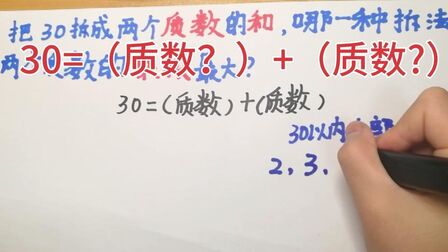 把30拆成两个质数的和，哪一种拆法
30=（质数？）+（质数?）
两 最大？
30=(质数)+(质数)
30以内
2，3，